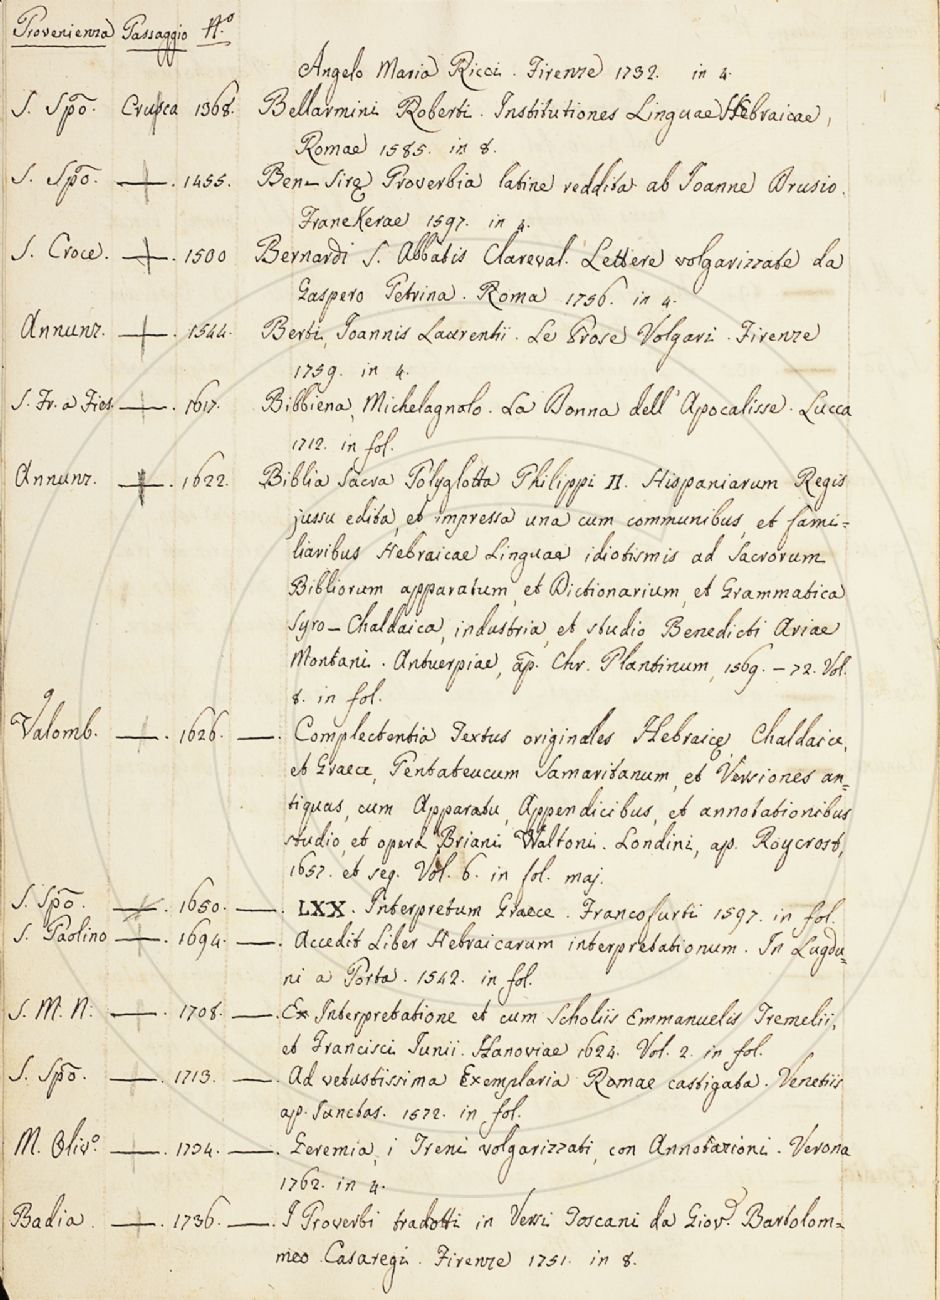 Provenienza Passaggio N.º
Angelo Maria Ricci. Firenze 1732. in 4.
S. Spō. Crusca 1368. Bellarmini Roberti. Institutiones Linguae Hebraicae,
Romae 1585. in 8.
S. Spō. —. 1455. Ben-Sirę Proverbia latine reddita ab Joanne Drusio.
FraneKerae 1597. in 4.
S. Croce. —. 1500 Bernardi S. Abbatis Clareval. Lettere volgarizzate da
Gaspero Petrina. Roma 1756. in 4.
Annunz. —. 1544. Berti, Joannis Laurentii. Le Prose Volgari. Firenze
1759. in 4.
S. Fr. a Fies. —. 1617. Bibbiena, Michelagnolo. La Donna dell'Apocalisse. Lucca
1712. in fol.
Annunz. —. 1622. Biblia Sacra Polyglotta Philippi II. Hispaniarum Regis
jussu edita, et impressa una cum communibus, et fami=
liaribus Hebraicae Linguae idiotismis ad Sacrorum
Bibliorum apparatum, et Dictionarium, et Grammatica
Syro-Chaldaica, industria, et studio Benedicti Ariae
Montani. Antuerpiae, ap. Chr. Plantinum, 1569. - 72. Vol.
8. in fol.
Valomb. —. 1626. —. Complectentia Textus originales Hebraicę, Chaldaice,
et Graece, Pentateucum Samaritanum, et Versiones an=
tiquas, cum Apparatu, Appendicibus, et annotationibus
studio, et opera Briani Waltoni. Londini, ap. Roycrost,
1657. et seg. Vol. 6. in fol. maj.
S. Spō. —. 1650. —. LXX. Interpretum Graece. Francofurti 1597. in fol.
S. Paolino —. 1694. —. Accedit Liber Hebraicarum interpretationum. In Lugdu=
ni a Porta. 1542. in fol.
S. M. N. —. 1708. —. Ex Interpretatione et cum Scholiis Emmanuelis Tremelii,
et Francisci Junii. Hanoviae 1624. Vol. 2. in fol.
S. Spō. —. 1713. —. Ad vetustissima Exemplaria Romae castigata. Venetiis
ap. Junctas. 1572. in fol.
M. Oliv.º —. 1734. —. Geremia, i Treni volgarizzati, con Annotazioni. Verona
1762. in 4.
Badia. —. 1736. —. I Proverbi tradotti in Versi Toscani da Giov. Bartolom=
meo Casaregi. Firenze 1751. in 8.